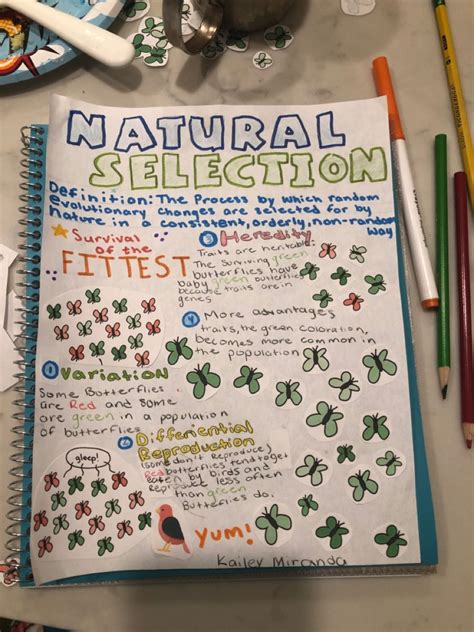 NATURAL
SELECTION
Definition: The Process by which random
evolutionary changes are selected for by
Nature in a consistent, orderly, non-random
way
Survival
of the
FITTEST
3 Heredity
Traits are heritable:
The surviving green
butterflies have
baby green butterflies
because traits are in
genes
4 More advantages
traits, the green coloration,
becomes more common in
the population
1 Variation
Some Butterflies
are Red and some
are green in a population
of butterflies
2 Differential
Reproduction
(some don't Reproduce)
Red butterflies tend to get
eaten by birds and
Reproduce less often
than green
Butterflies do.
gleep!
Yum!
Kailey Miranda